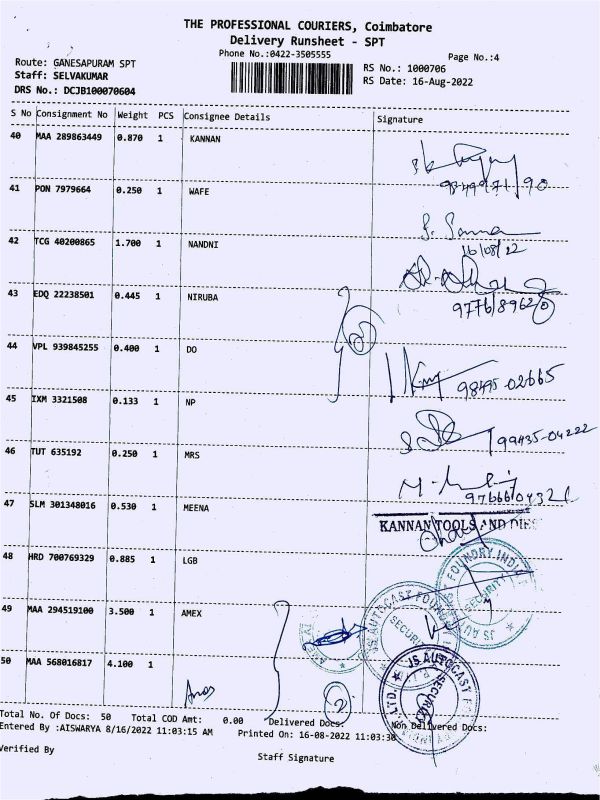 THE PROFESSIONAL COURIERS, Coimbatore
Delivery Runsheet - SPT
Phone No.:0422-3505555
Page No.:4
Route: GANESAPURAM SPT
RS No.: 1000706
Staff: SELVAKUMAR
RS Date: 16-Aug-2022
DRS No.: DCJB100070604
S No Consignment No Weight PCS Consignee Details Signature
40 MAA 289863449 0.870 1 KANNAN
41 PON 7979664 0.250 1 WAFE
42 TCG 40200865 1.700 1 NANDNI
16/08/22
43 EDQ 22238501 0.445 1 NIRUBA
44 VPL 939845255 0.400 1 DO
98495-02665
45 IXM 3321508 0.133 1 NP
99435-04222
46 TUT 635192 0.250 1 MRS
47 SLM 301348016 0.530 1 MEENA
KANNAN TOOLS AND DIES
48 HRD 700769329 0.885 1 LGB
49 MAA 294519100 3.500 1 AMEX
JS AUTOCAST FOUNDRY INDIA
SECURITY
50 MAA 568016817 4.100 1
JS AUTOCAST
SECURITY
2
Total No. Of Docs: 50 Total COD Amt: 0.00 Delivered Docs: Non Delivered Docs:
Entered By :AISWARYA 8/16/2022 11:03:15 AM Printed On: 16-08-2022 11:03:30
Verified By
Staff Signature